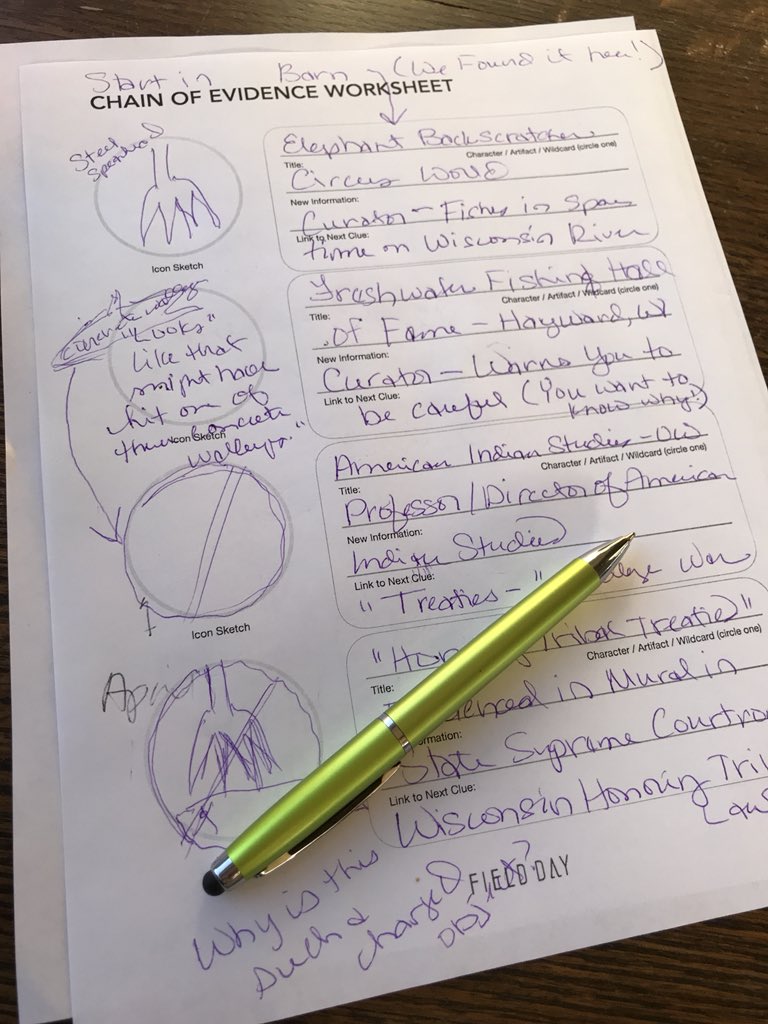 Start in Barn (We Found it here!)
CHAIN OF EVIDENCE WORKSHEET
Steel Spearhead
Icon Sketch
Elephant Backscratcher
Character / Artifact / Wildcard (circle one)
Title:
Circus World
New Information:
Curator - Fishes in spare
Link to Next Clue:
time on Wisconsin River
"Looks"
like that
might have
hit one of
these concrete
walleyes."
Icon Sketch
Freshwater Fishing Hall
Character / Artifact / Wildcard (circle one)
Title:
of Fame - Hayward, WI
New Information:
Curator - Warns you to
Link to Next Clue:
be careful (You want to
know why?)
Icon Sketch
American Indian Studies - UW
Character / Artifact / Wildcard (circle one)
Title:
Professor/Director of American
New Information:
Indian Studies
Link to Next Clue:
"Treaties - " War
"Tribal Treaties"
Character / Artifact / Wildcard (circle one)
Title:
in Mural in
rmation:
State Supreme Courtroo
Link to Next Clue:
Wisconsin Honoring Tri
Law
Why is this
such a
charged
FIELD DAY